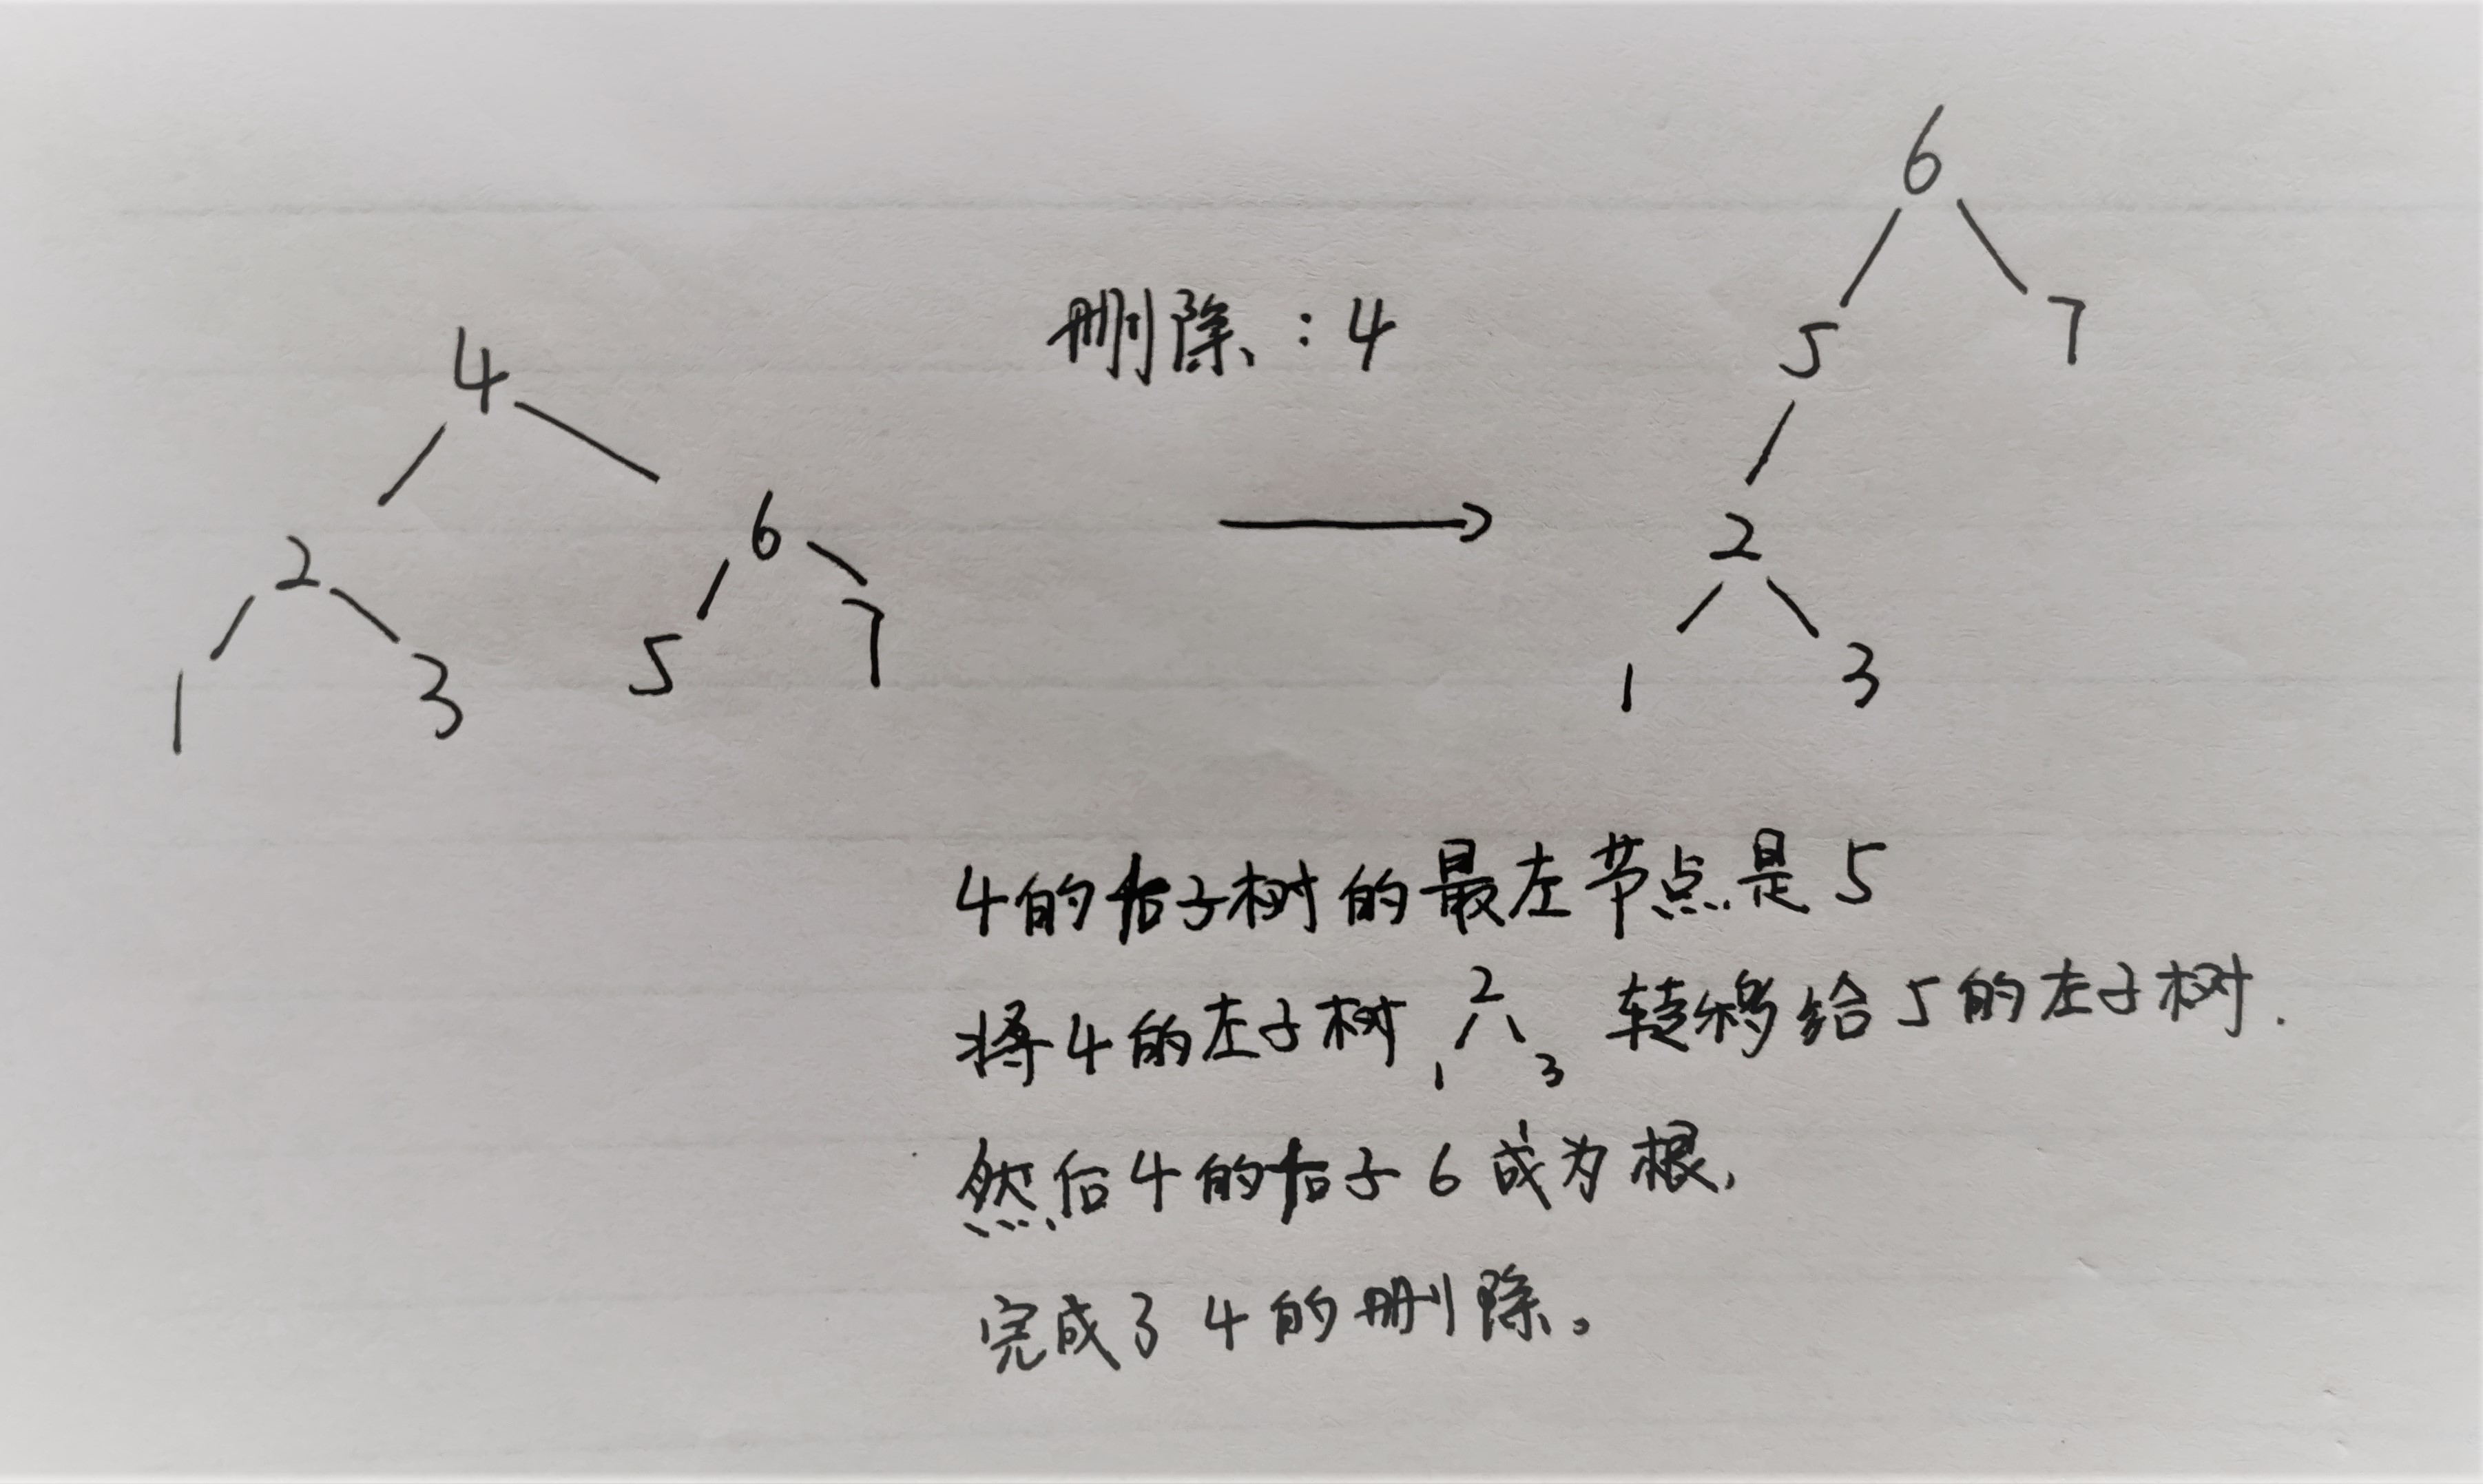 6
删除：4
5 7
4
6
2
2
5 7
1 3
1 3
4的右子树的最左节点是5
将4的左子树 2 1 3 转移给5的左子树.
然后4的右子6成为根,
完成了4的删除。